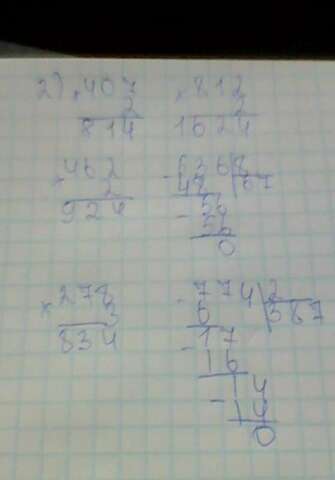 2) × 407 × 812
2 2
814 1624
× 462 - 536 8
2 48 67
924 - 56
56
0
× 278 - 774 2
3 6 387
834 - 17
16
- 14
14
0